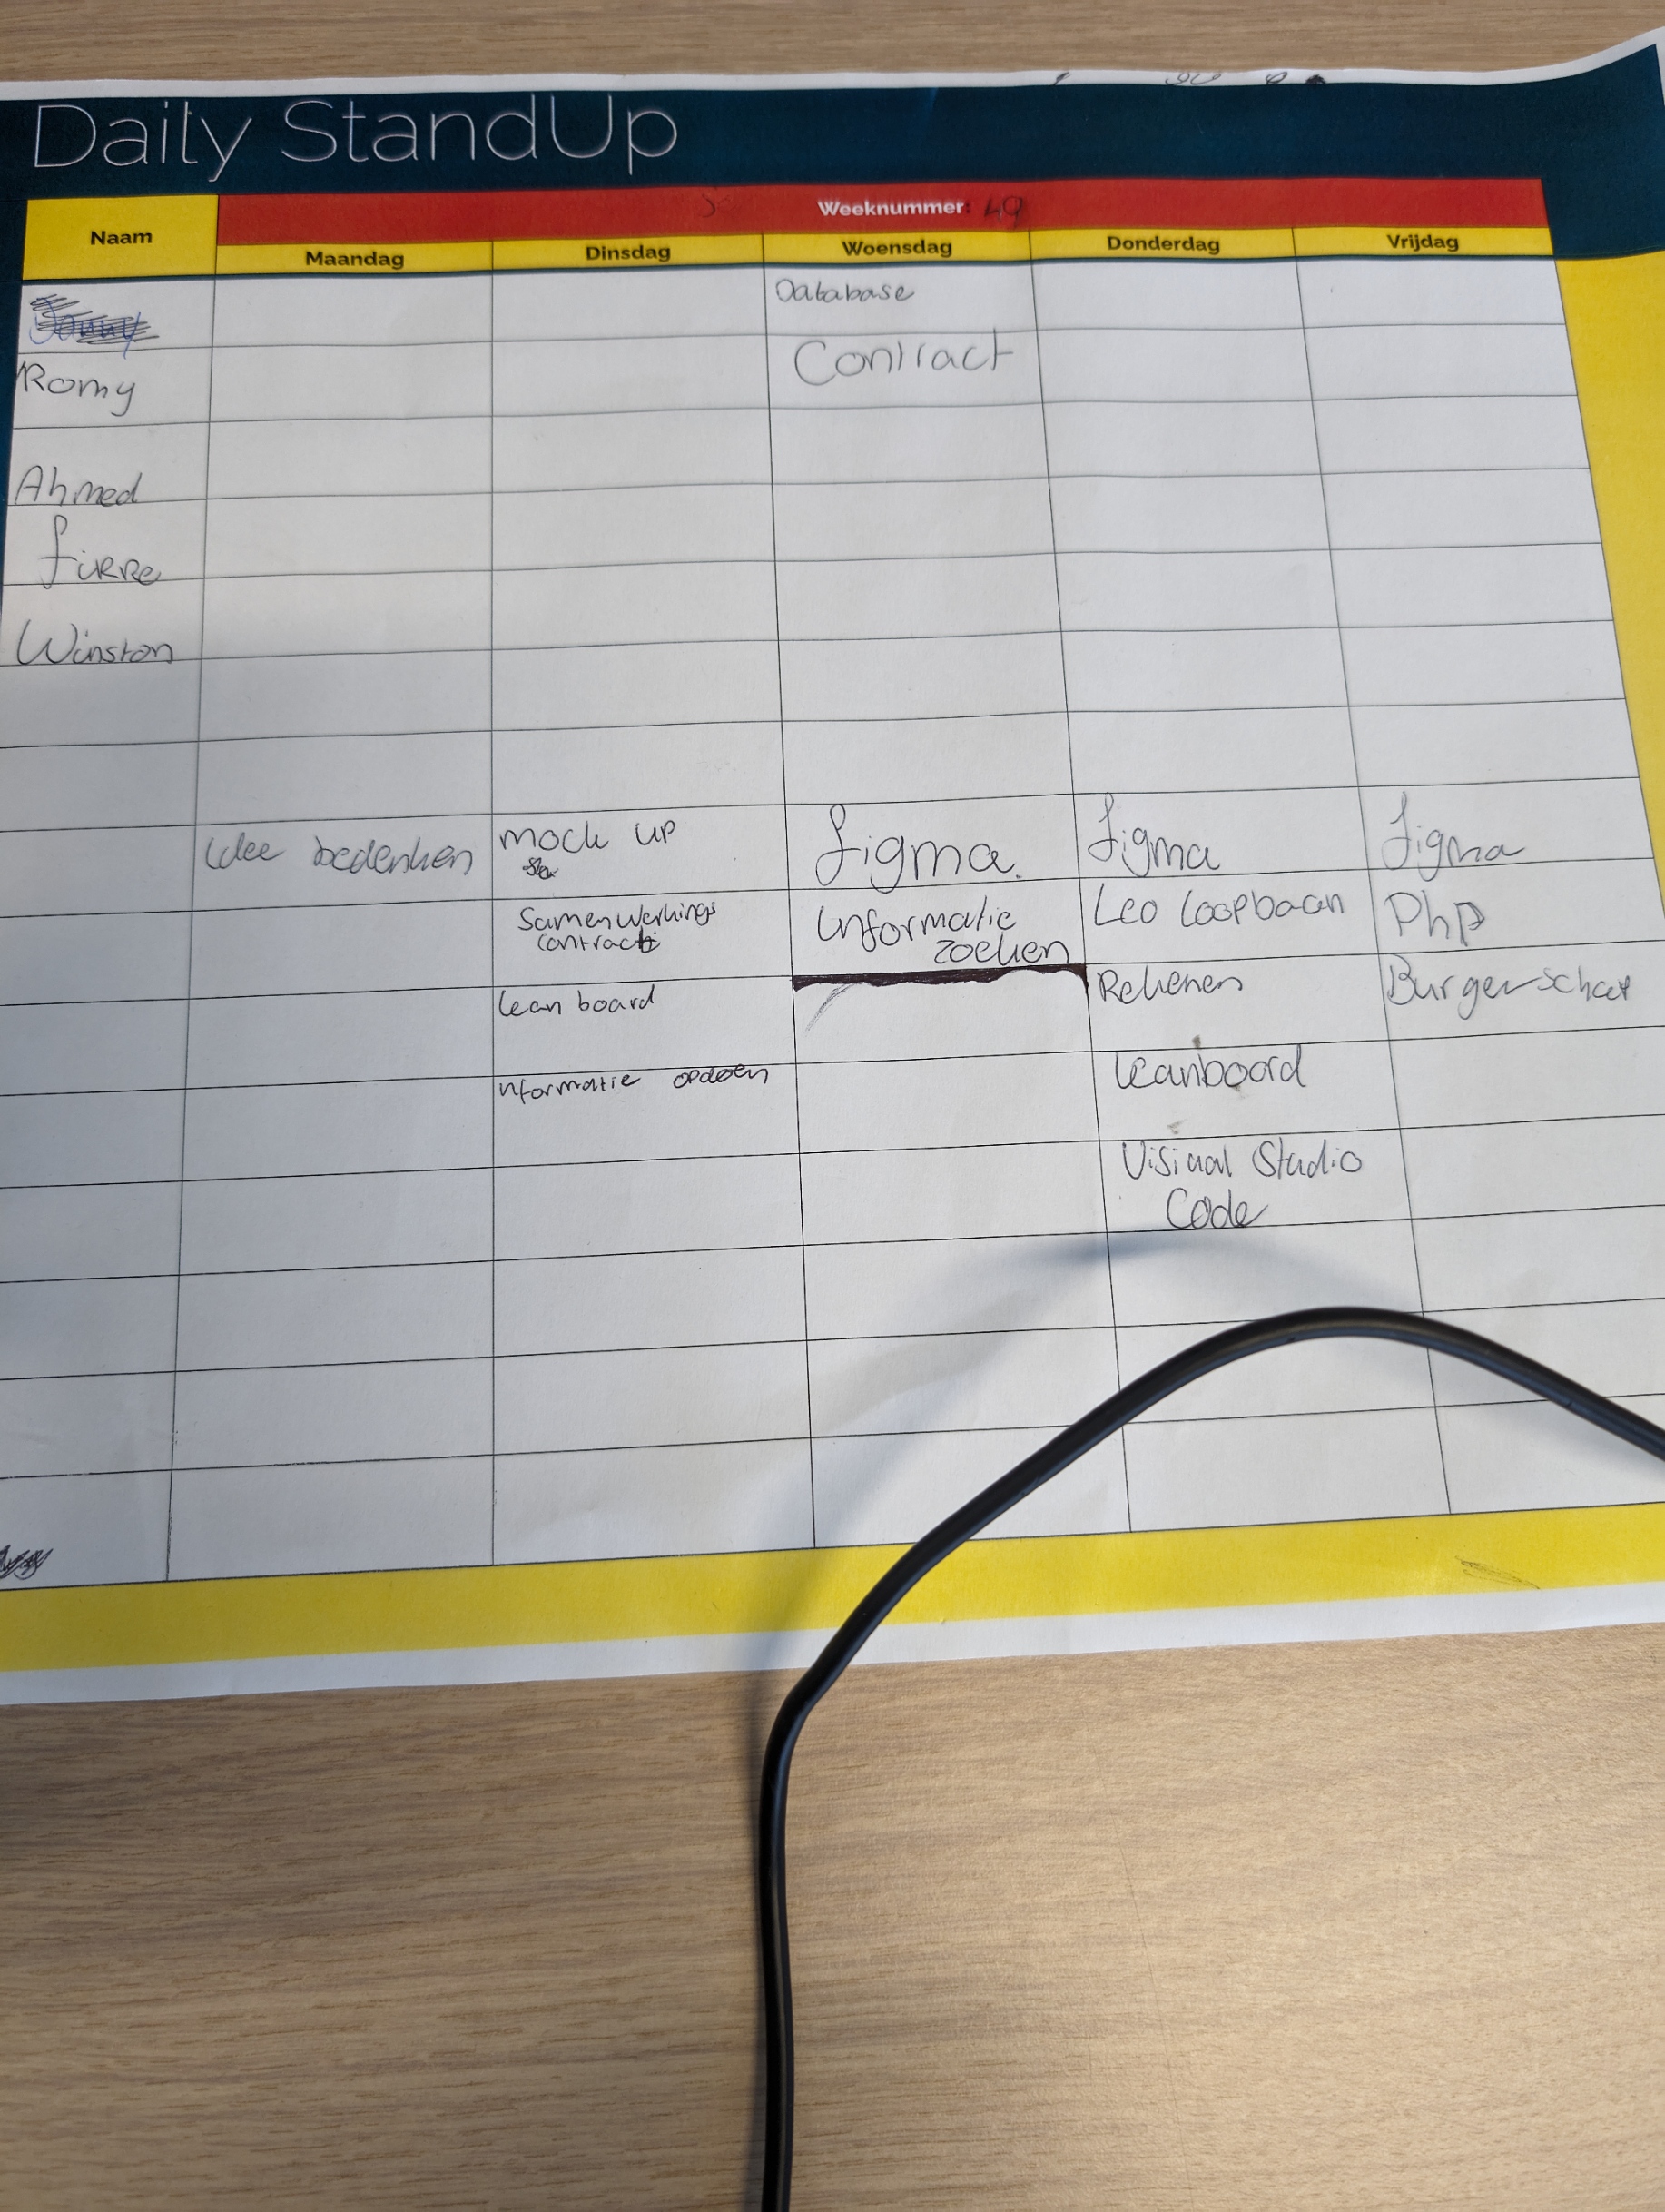 Daily StandUp
Naam
Weeknummer: 49
Maandag Dinsdag Woensdag Donderdag Vrijdag
Database
Romy Contract
Ahmed
Winston
idee bedenken mock up Figma. Figma Figma
Samenwerkings contract Informatie zoeken Leo Loopbaan PhP
Lean board Rekenen
informatie opdoen Leanboord
Code